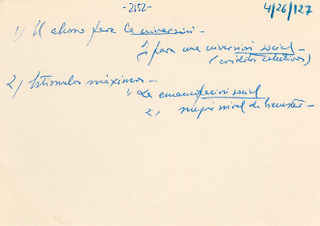 -2152-
4/26/127
1) El ahorro para la inversión -
y para una inversión social -
(créditos colectivos)
2) Estímulos máximos -
1) La emancipación social
2) mayor nivel de bienestar -